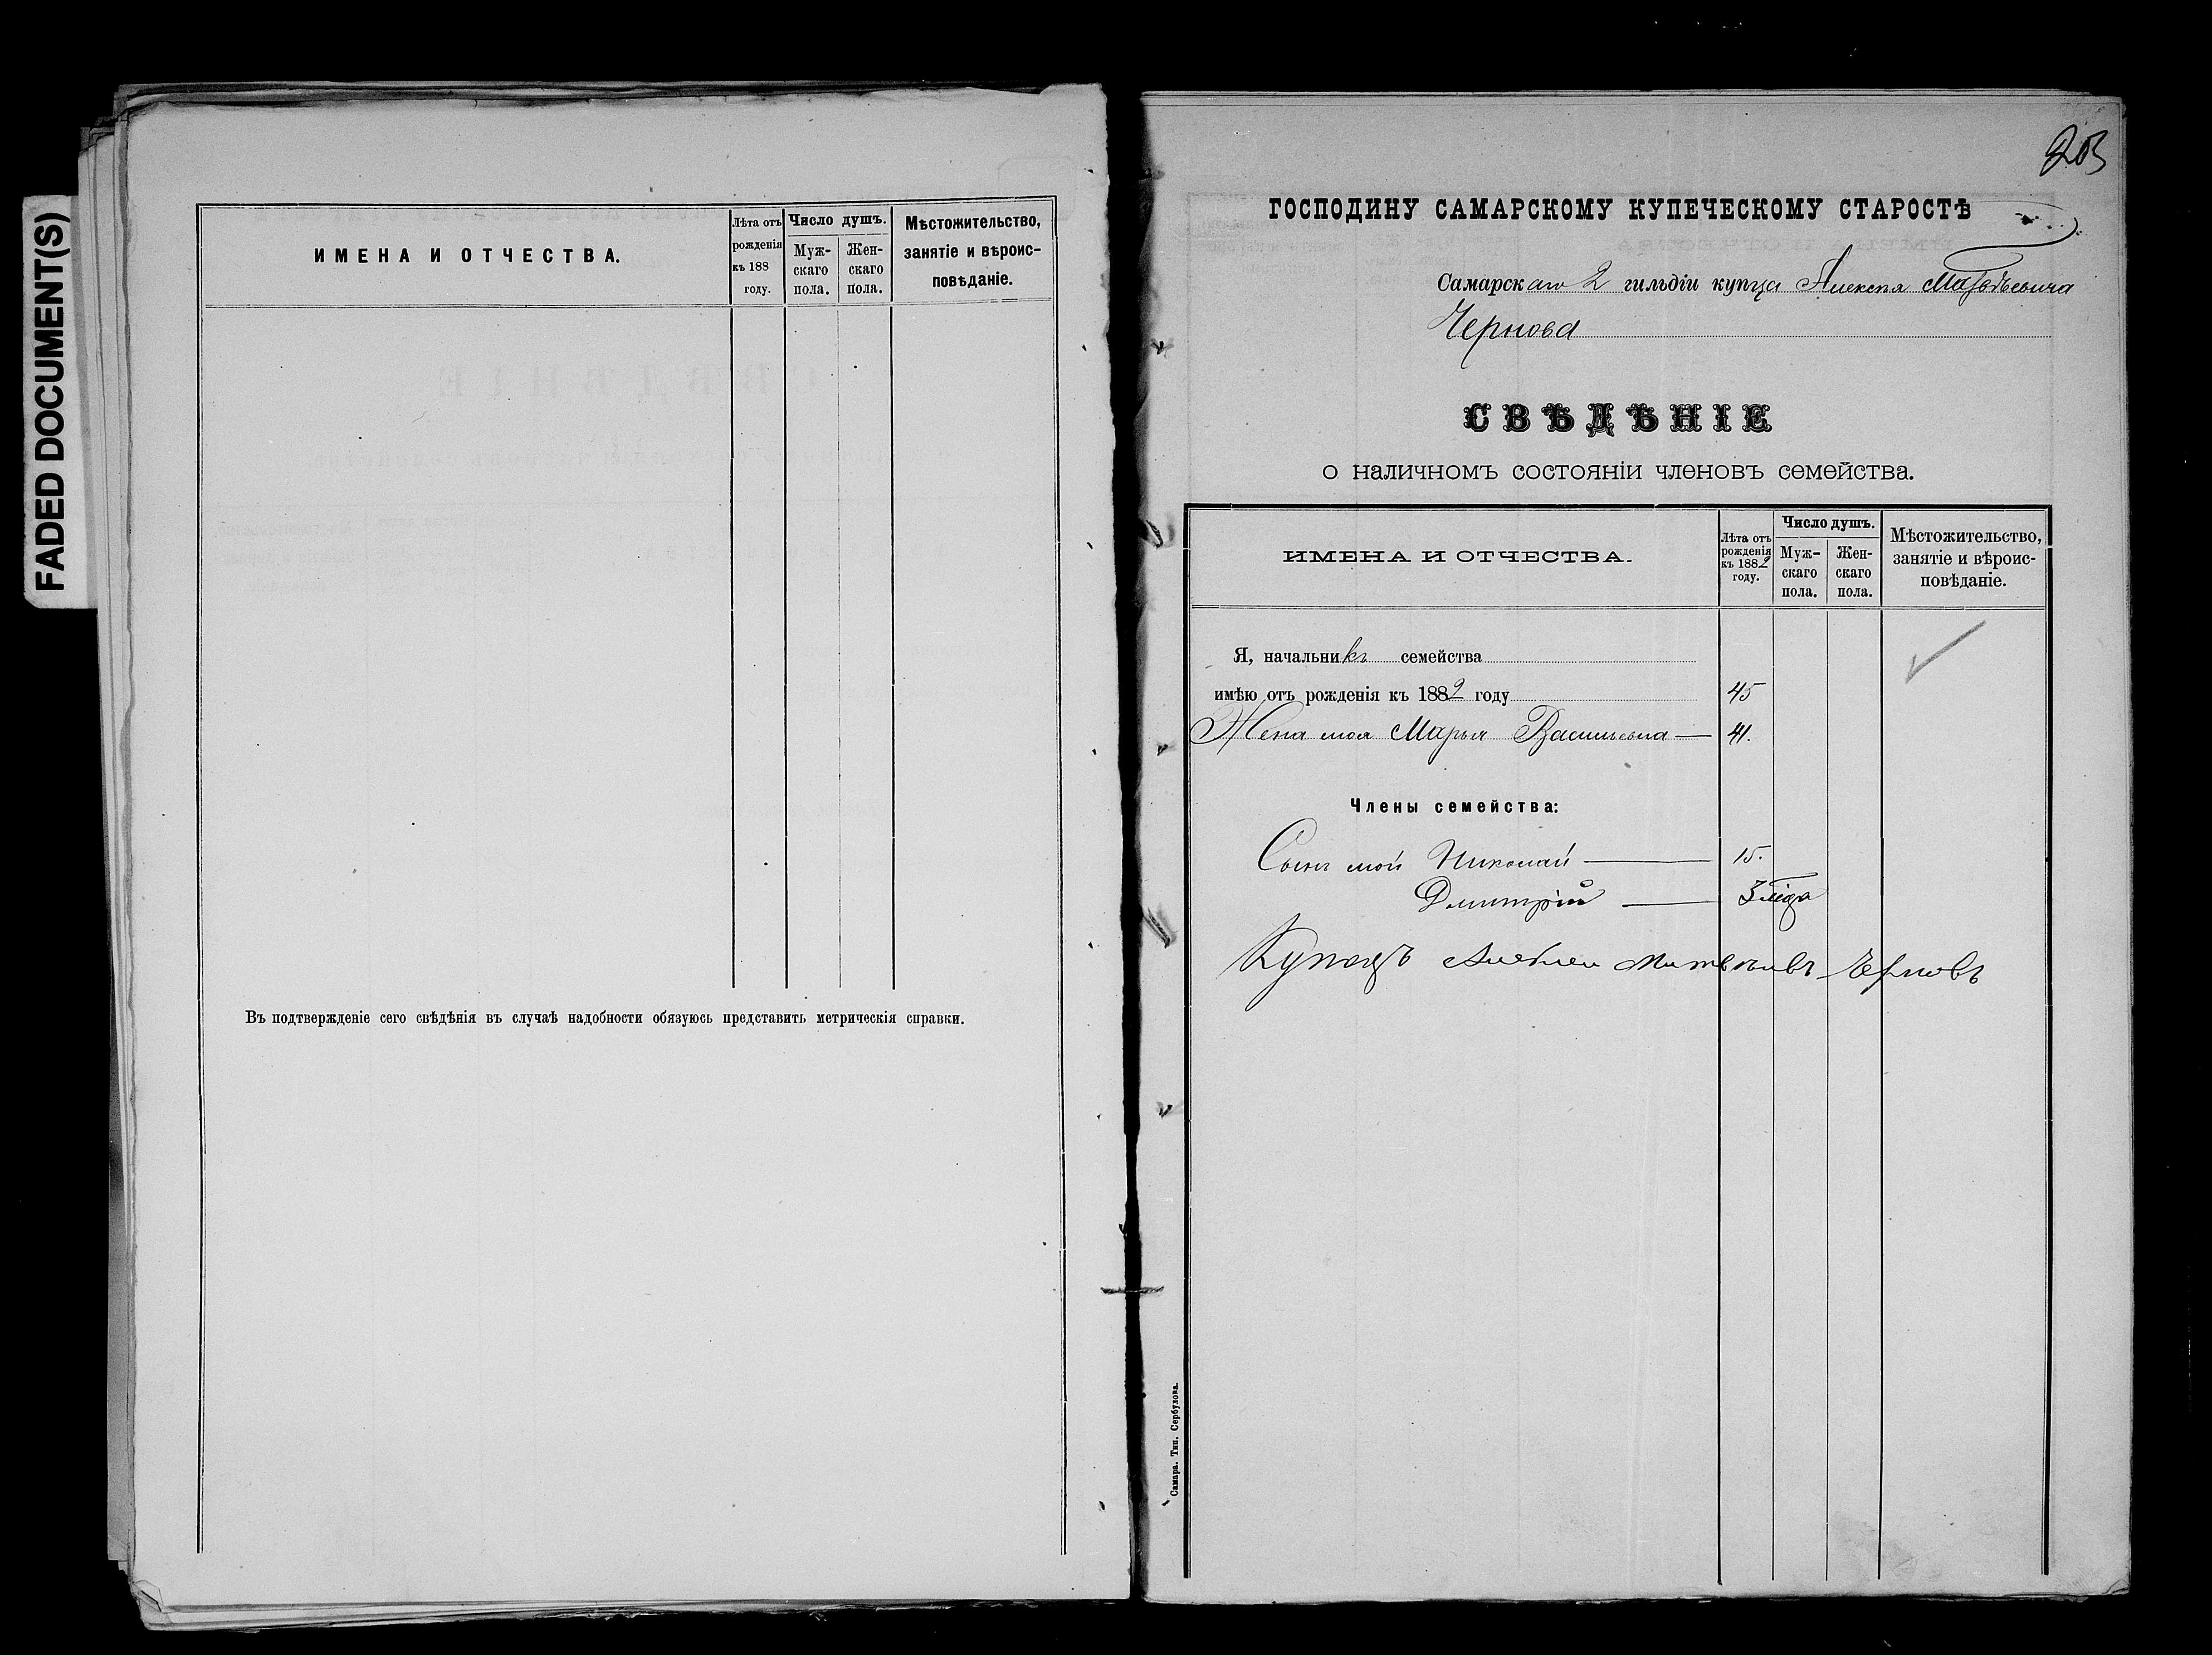 FADED DOCUMENT(S)
ИМЕНА И ОТЧЕСТВА.
Лѣта отъ рожденія къ 188 году.
Число душъ.
Мужскаго пола.
Женскаго пола.
Мѣстожительство, занятіе и вѣроисповѣданіе.
Въ подтвержденіе сего свѣдѣнія въ случаѣ надобности обязуюсь представить метрическія справки.
203
ГОСПОДИНУ САМАРСКОМУ КУПЕЧЕСКОМУ СТАРОСТѢ
Самарскаго 2 гильдіи купца Алексѣя Матвѣевича
Чернова
СВѢДѢНІЕ
о наличномъ состояніи членовъ семейства.
ИМЕНА И ОТЧЕСТВА.
Лѣта отъ рожденія къ 1882 году.
Число душъ.
Мужскаго пола.
Женскаго пола.
Мѣстожительство, занятіе и вѣроисповѣданіе.
Я, начальникъ семейства
имѣю отъ рожденія къ 1882 году 45
Жена моя Марья Васильевна — 41.
Члены семейства:
Сынъ мой Николай — 15.
Дмитрій — 3 года
Купецъ Алексей Матвѣевъ Черновъ
Самара. Тип. Сербулова.